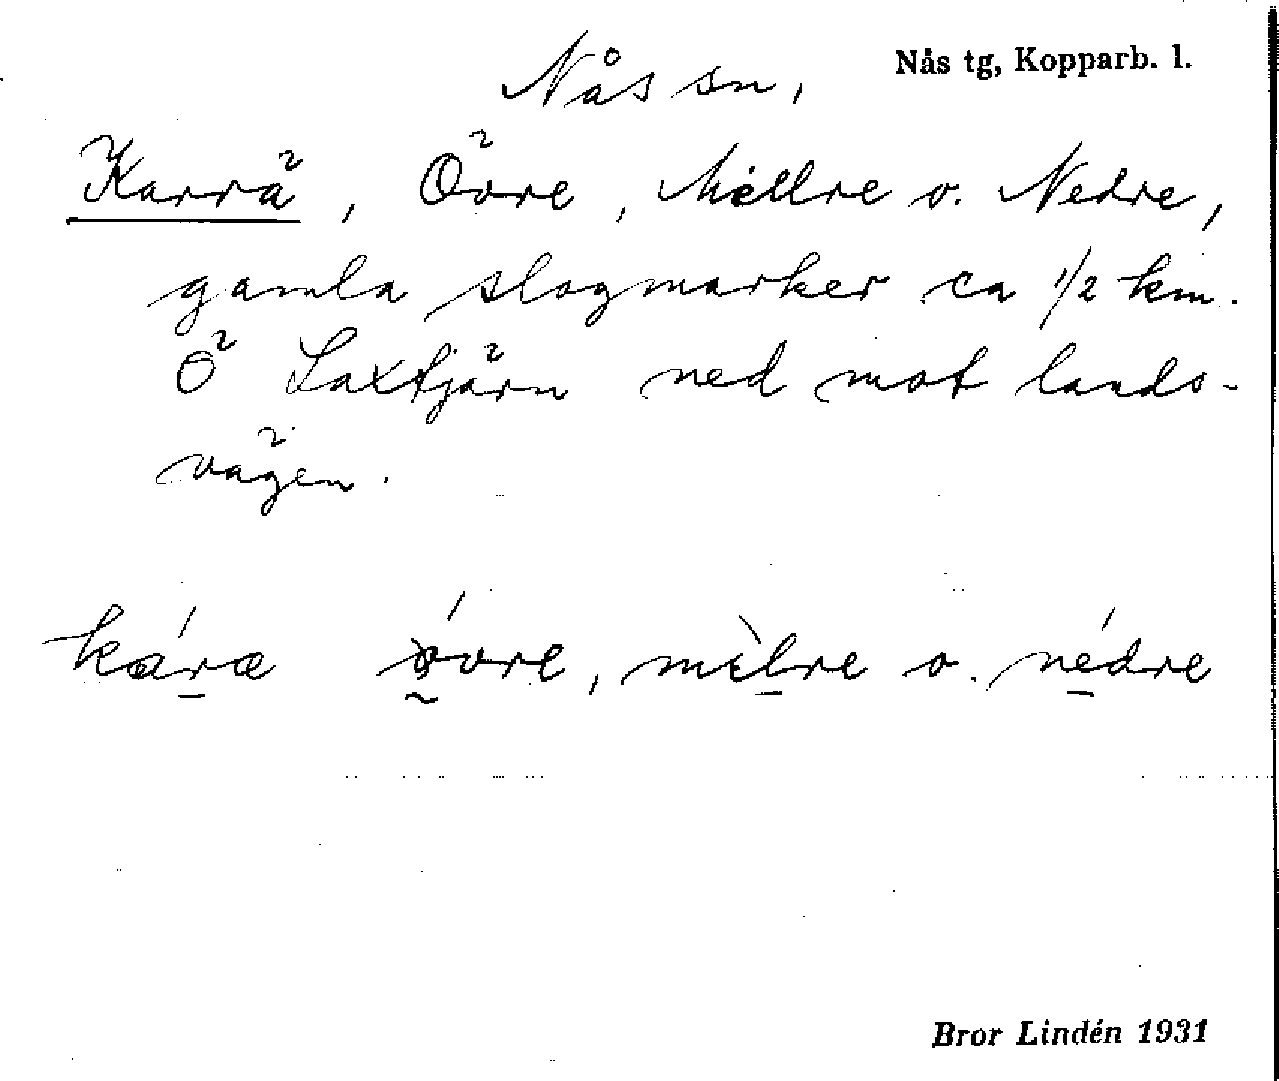 Nås sn,
Nås tg, Kopparb. l.
Karrä, Övre, Mellre o. Nedre,
gamla slogmarker ca 1/2 km.
Ö Laxtjärn ned mot lands-
vägen.
kára óvre, mèlre o. nédre
Bror Lindén 1931